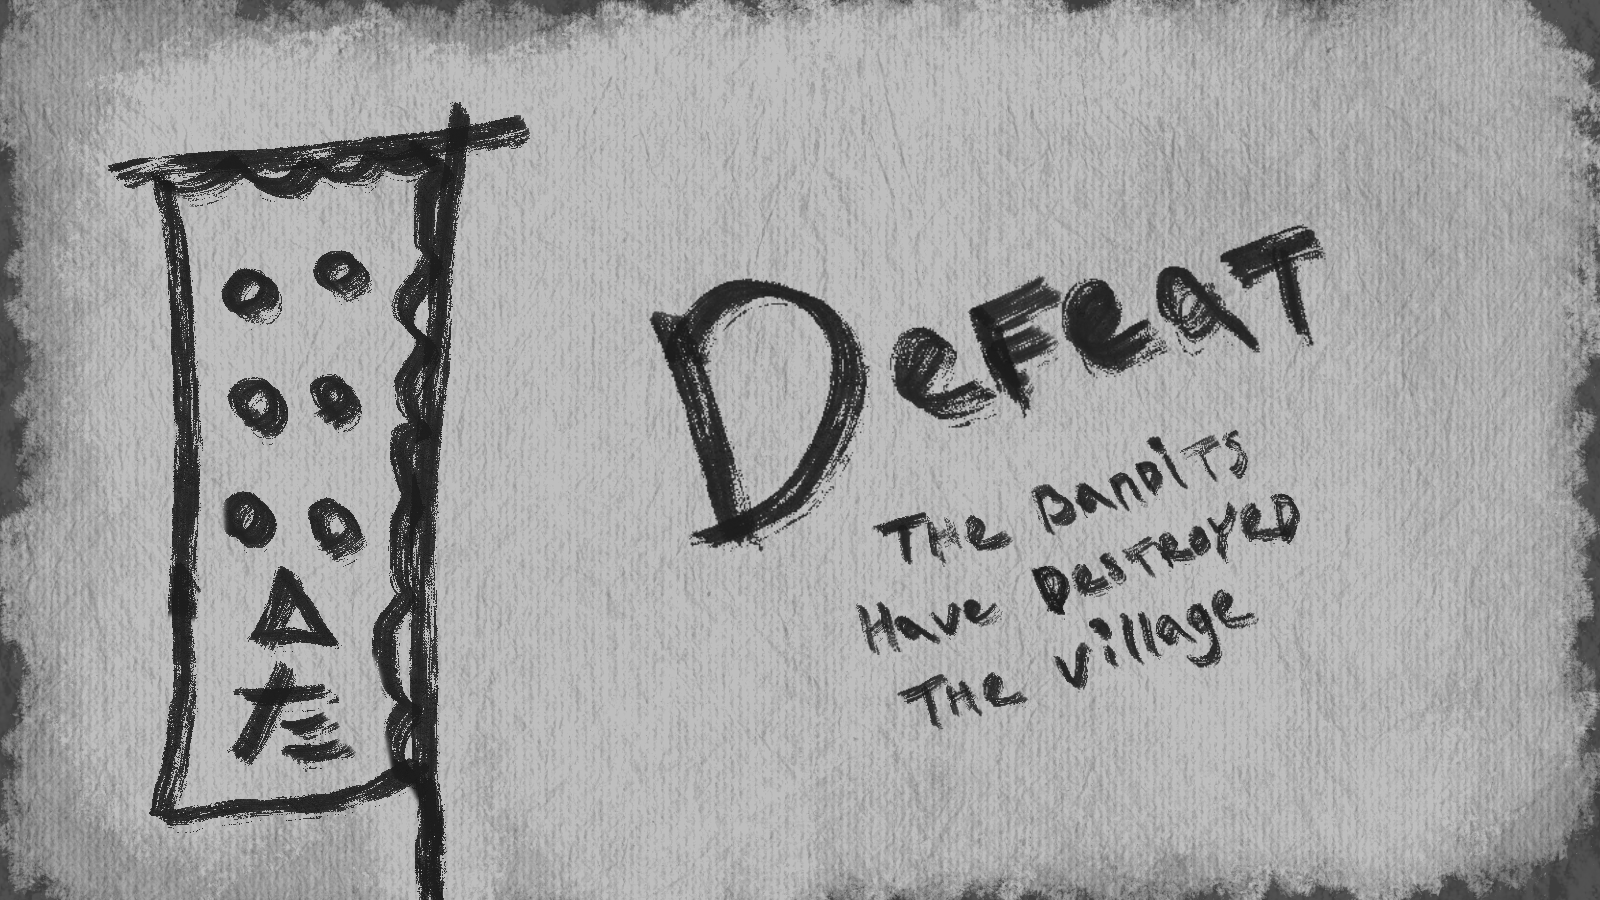 た
Defeat
The Bandits
Have Destroyed
The village